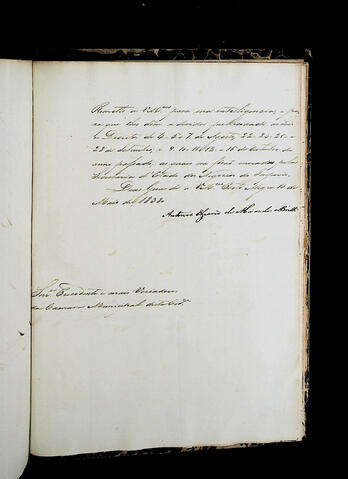 Remetto a V.M.ces para sua intelligencia, e pa
ra que lhes dem a devida publicidade os Leis
e Decretos de 4, 5 e 7 de Agosto, 22, 24, 25 e
28 de Setembro, e 9, 10, 11, 13 e 15 de Outubro do
anno passado, os quaes me forão enviados pela
Secretaria d'Estado dos Negocios do Imperio.
Deos Guarde a V.M.ces 10 de
Maio de 1833.
Antonio de Miranda e Brito
Snr.es Presidente e mais Vereadores
da Camara Municipal desta Cid.e